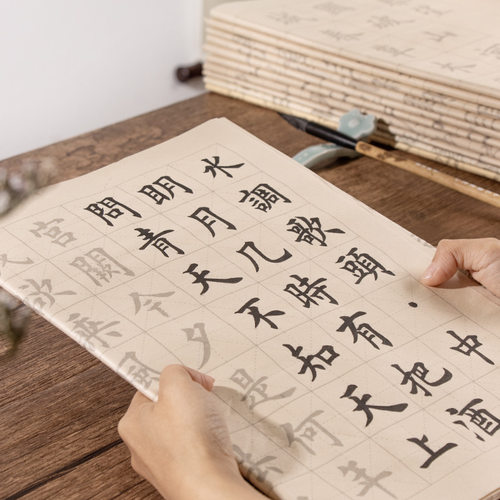 水調歌頭·中
明月几時有把酒
問青天不知天上
宫闕今夕是何年
欲乘風